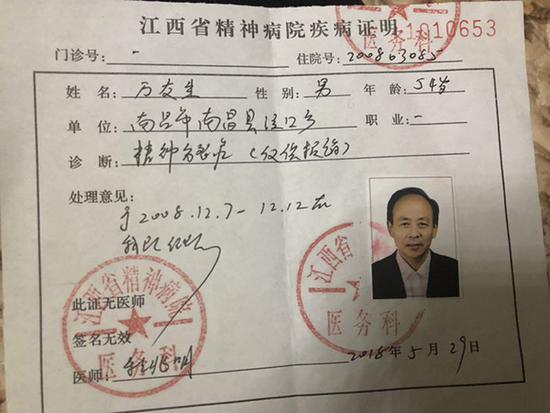 江西省精神病院疾病证明
1010653
医务科
门诊号: - 住院号: 200863085
姓 名: 万友生 性 别: 男 年 龄: 54岁
单 位: 南昌市南昌县泾口乡 职 业: -
诊 断: 精神分裂症 (仅供报销)
处理意见:
于2008.12.7-12.12在
我院住院
江西省
医务科
江西省精神病院
医务科
此证无医师
签名无效
医师:
2018年5月29日